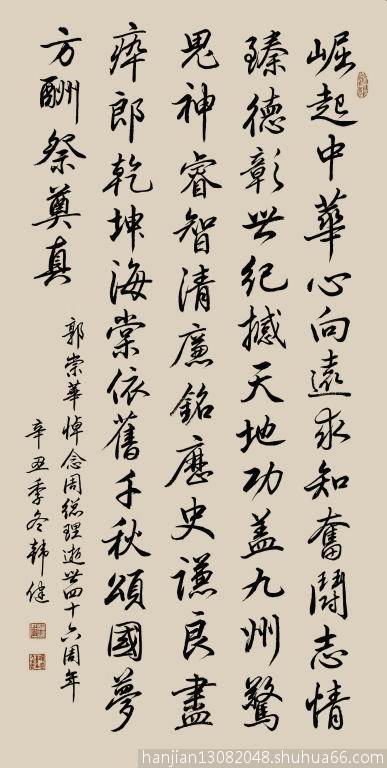 崛起中華心向遠求知奮鬪志情
臻德彰世紀撼天地功蓋九州驚
鬼神睿智清廉銘歷史謙良盡
瘁郎乾坤海棠依舊千秋頌國夢
方酬祭奠真
郭崇華悼念周總理逝世四十六周年
辛丑季冬韩健
hanjian13082048.shuhua66.com